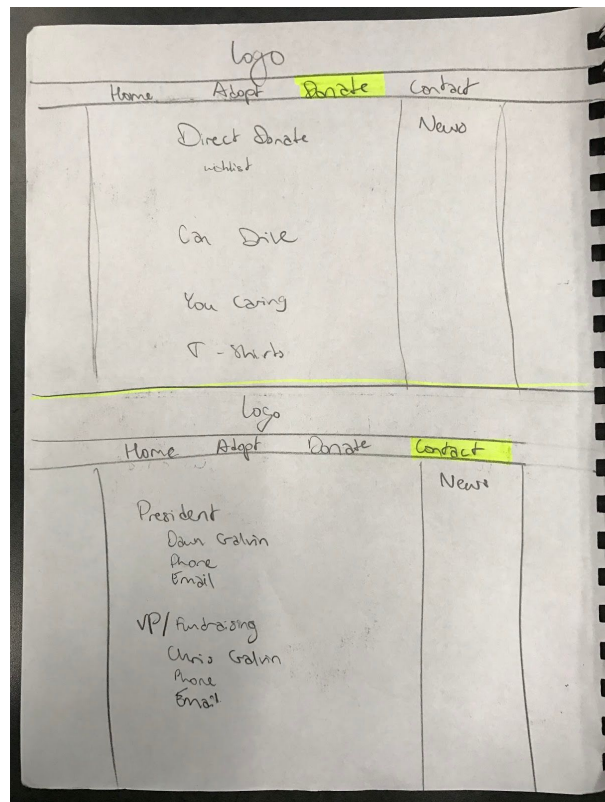 Logo
Home Adopt Donate Contact
Direct Donate
wishlist
News
Can Drive
You Caring
T-Shirts
Logo
Home Adopt Donate Contact
News
President
Dawn Galvin
Phone
Email
VP/Fundraising
Chris Galvin
Phone
Email